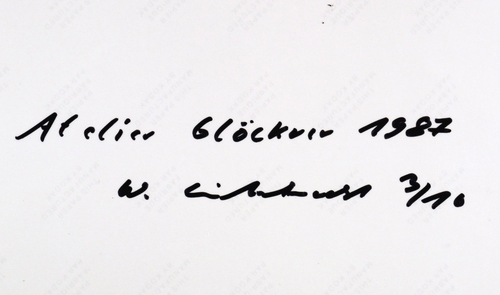 Atelier Glöckner 1987
W. 3/10